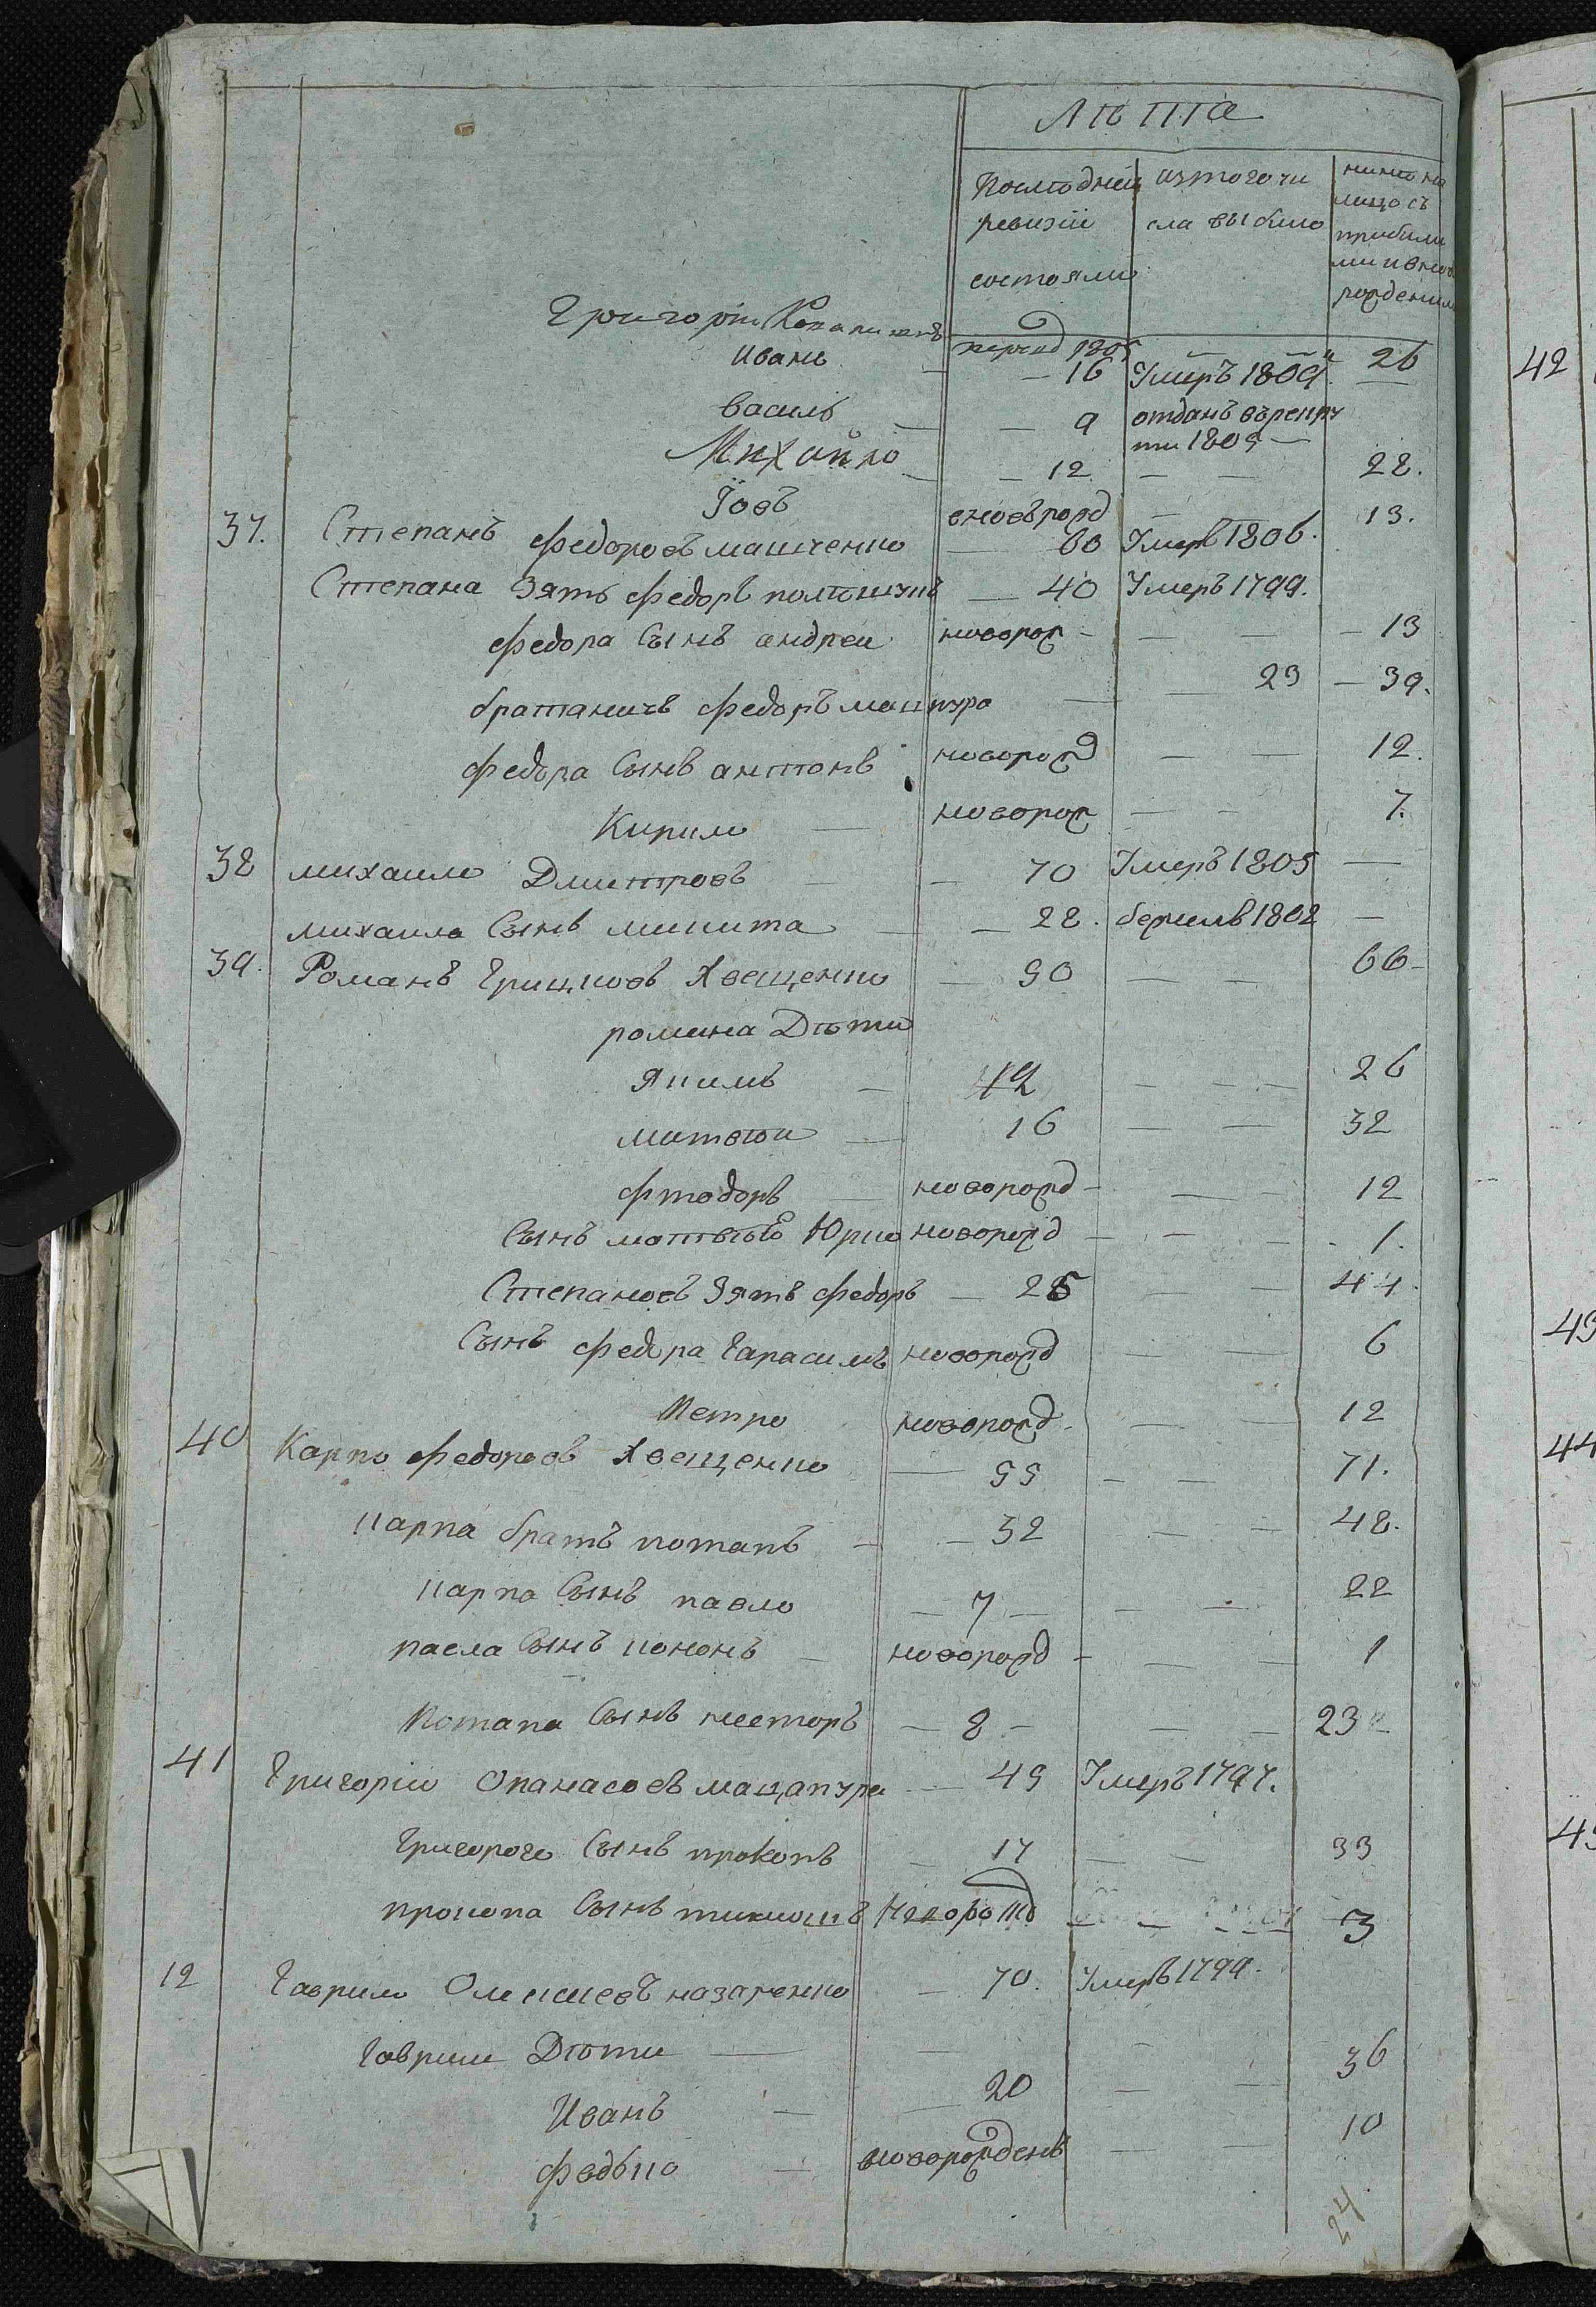 Лѣта
Послѣдней ревизіи состояли
изтого числа выбыло
нынѣ на лицо съ прибылими и вновь рожденим
Григоріи
перевод 1805 26
Иванъ — 16 Умеръ 1809 —
василь — 9 отданъ върекру
ти 1805 —
Михайло — 12 — — 28.
Іовъ вновьрожд — 13.
37. Степанъ федоровъ машченко — 60 Умеръ 1806.
Степана Зять федоръ — 40 Умеръ 1799.
федора Сынъ андреи новорож — — — 13
братаничъ федоръ — — 23 — 39.
федора Сынъ антонъ новорожд — — 12.
Кирило — новорож — — 7.
38 михаило Дмитровъ — — 70 Умеръ 1805 —
михаила Сынъ микита — — 28. бежилъ 1802 —
39. Романъ Грицковъ Хвещенко — 50 — — 66
романа Дѣти
Якимъ — 12 — — — 26
матвѣи — 16 — — 32
фтодоръ — новорожд — — — 12
Сынъ матвѣя Юрко новорожд — — — 1.
Степановъ Зять федоръ — 28 — — 44.
Сынъ федора Гарасимъ новорожд — — 6
Петро новорожд — — — 12
40 Карпо федоровъ Хвещенко — 55 — — 71.
карпа братъ потапъ — — 32 — — 48.
карпа Сынъ павло — 7 — — — 22
павла Сынъ кононъ — новорожд — — — 1
Потапа Сынъ несторъ — 8 — — — 23
41 Григоріи Опанасовъ мацапура — 45 Умеръ 1797.
Григорого Сынъ прокопъ — 17 — — 33
прокопа Сынъ тимошъ Новорожд — — 3
12 Гаврило Олексиевъ назаренко — 70. Умеръ 1799.
Гаврили Дѣти — — — —
Иванъ — — 20 — — 36
федько — новорожденъ — — 10
24
42
43
44
45